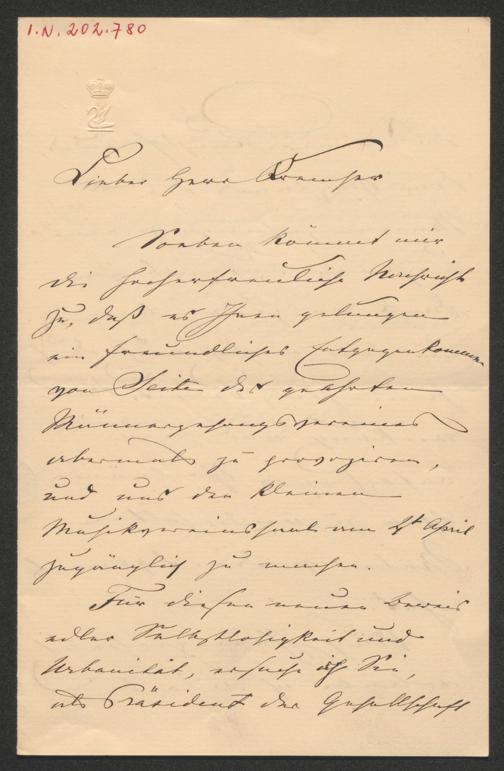 I.N. 202.780
Lieber Herr Kremser
Soeben kommt mir
die hocherfreuliche Nachricht
zu, daß es Ihnen gelungen
ein freundliches Entgegenkommen
von Seite des geehrten
Männergesangsvereines
abermals zu provoziren,
und uns den kleinen
Musikvereinssaal am April
zugänglich zu machen.
Für diesen neuen Beweis
edler Selbstlosigkeit und
Urbanität, ersuche ich Sie,
als Präsident der Gesellschaft